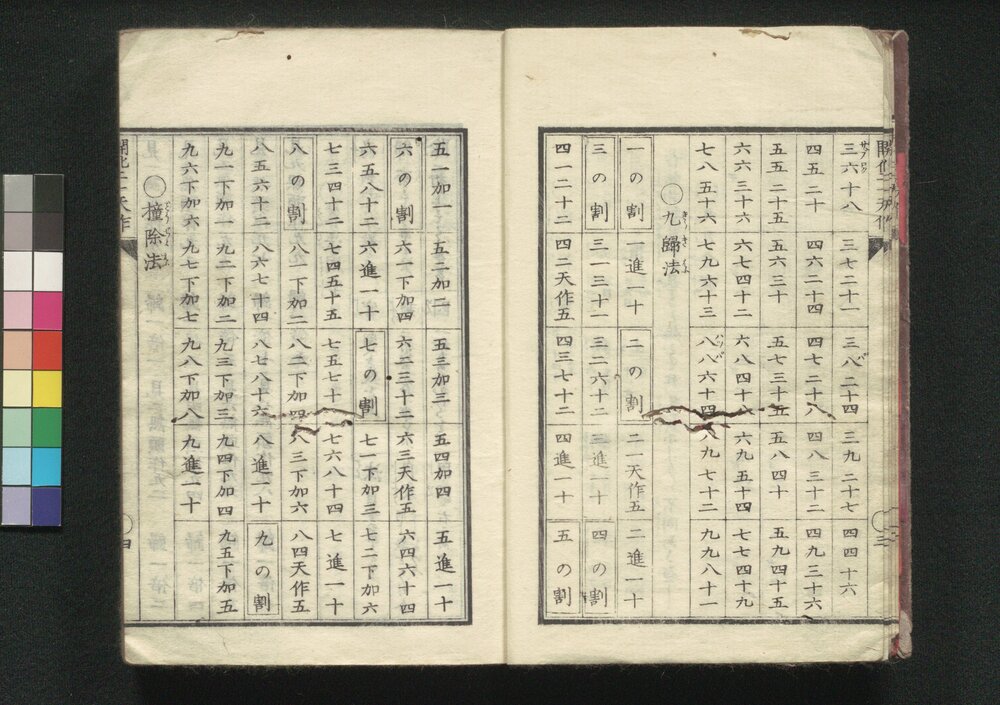 三
三六十八 三七二十一 三八二十四 三九二十七 四四十六
四五二十 四六二十四 四七二十八 四八三十二 四九三十六
五五二十五 五六三十 五七三十五 五八四十 五九四十五
六六三十六 六七四十二 六八四十八 六九五十四 七七四十九
七八五十六 七九六十三 八八六十四 八九七十二 九九八十一
〇九歸法
一の割 一進一十 二の割 二一天作五 二進一十
三の割 三一三十一 三二六十二 三進一十 四の割
四一二十二 四二天作五 四三七十二 四進一十 五の割
五一加一 五二加二 五三加三 五四加四 五進一十
六の割 六一下加四 六二三十二 六三天作五 六四六十四
六五八十二 六進一十 七の割 七一下加三 七二下加六
七三四十二 七四五十五 七五七十一 七六八十四 七進一十
八の割 八一下加二 八二下加四 八三下加六 八四天作五
八五六十二 八六七十四 八七八十六 八進一十 九の割
九一下加一 九二下加二 九三下加三 九四下加四 九五下加五
九六下加六 九七下加七 九八下加八 九進一十
〇撞除法
四